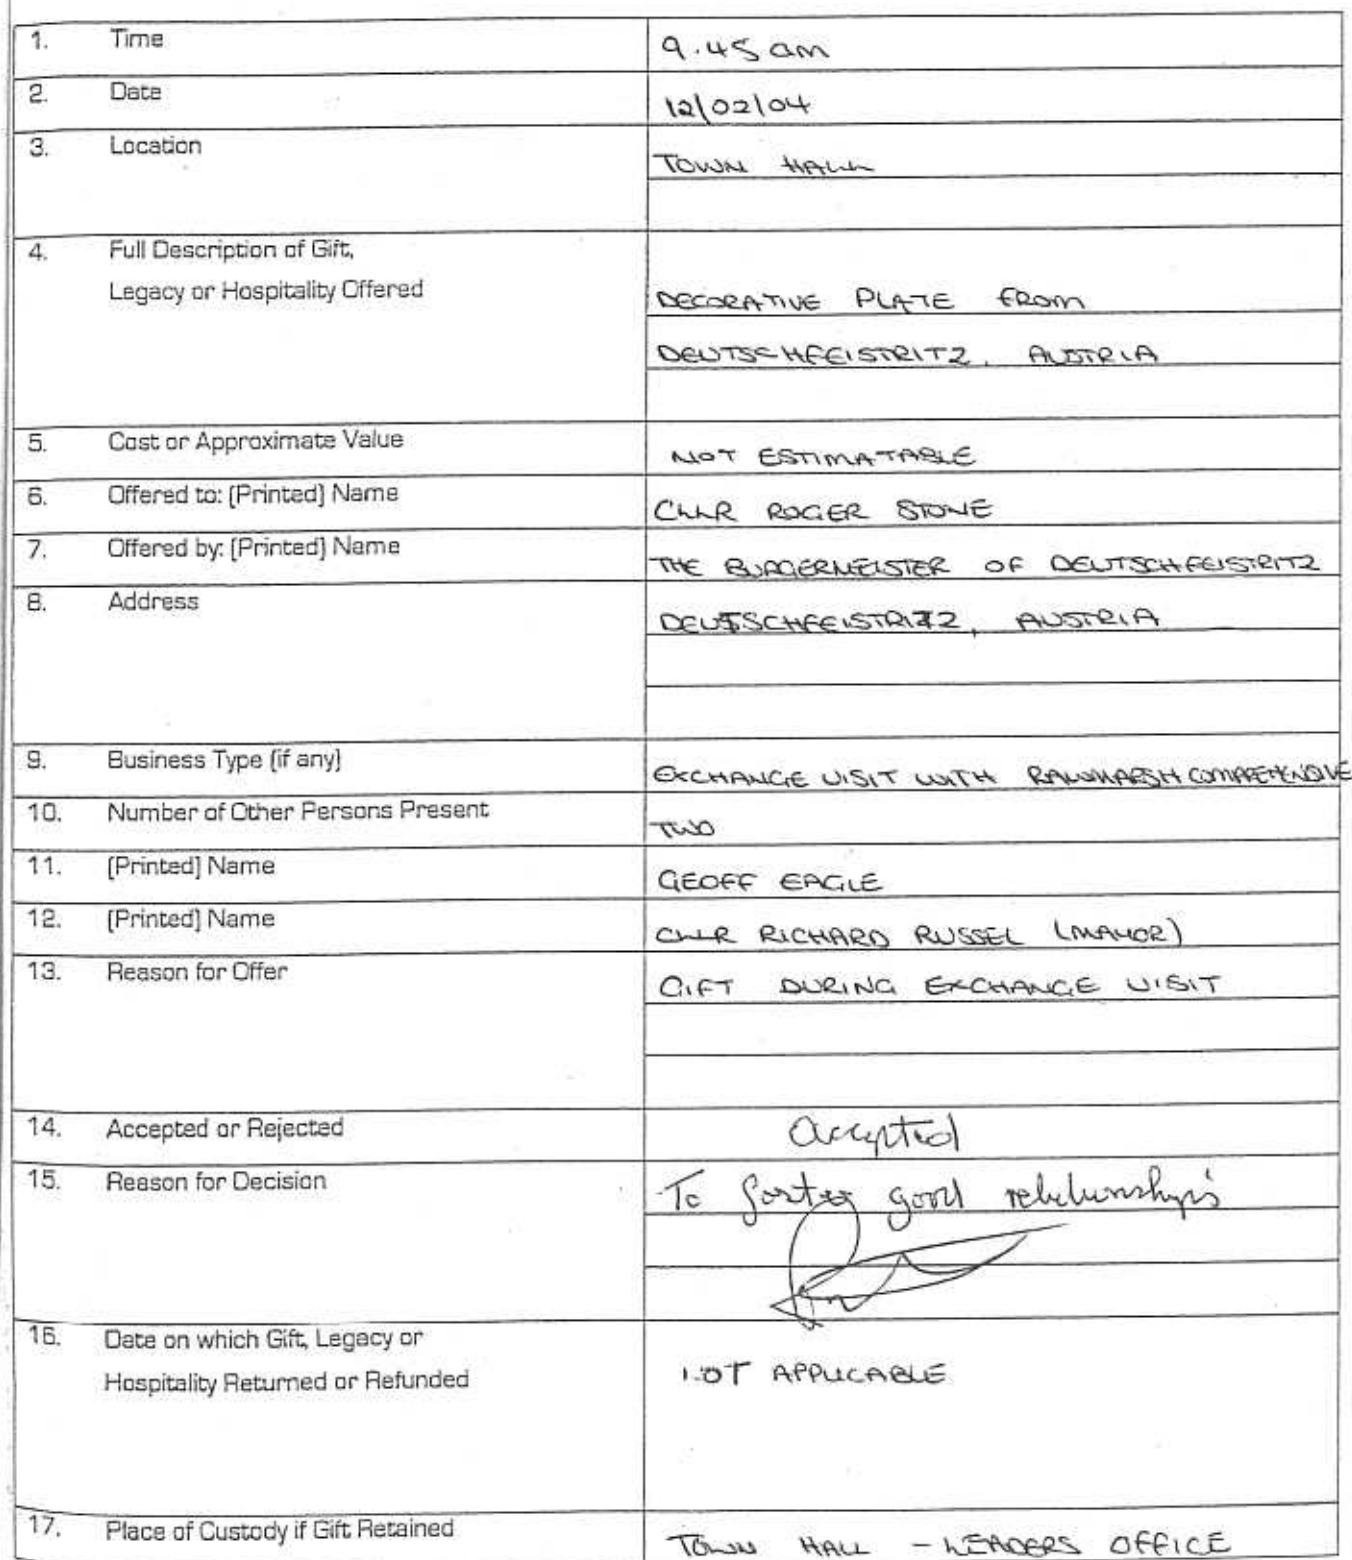 1. Time 9.45 am
2. Date 12/02/04
3. Location TOWN HALL
4. Full Description of Gift,
Legacy or Hospitality Offered DECORATIVE PLATE FROM
DEUTSCHFEISTRITZ, AUSTRIA
5. Cost or Approximate Value NOT ESTIMATABLE
6. Offered to: (Printed) Name CLLR ROGER STONE
7. Offered by: (Printed) Name THE BURGERMEISTER OF DEUTSCHFEISTRITZ
8. Address DEUTSCHFEISTRITZ, AUSTRIA
9. Business Type (if any) EXCHANGE VISIT WITH RAWMARSH COMPREHENSIVE
10. Number of Other Persons Present TWO
11. (Printed) Name GEOFF EAGLE
12. (Printed) Name CLLR RICHARD RUSSEL (MAYOR)
13. Reason for Offer GIFT DURING EXCHANGE VISIT
14. Accepted or Rejected Accepted
15. Reason for Decision To foster good relationship's
16. Date on which Gift, Legacy or
Hospitality Returned or Refunded NOT APPLICABLE
17. Place of Custody if Gift Retained TOWN HALL - LEADERS OFFICE